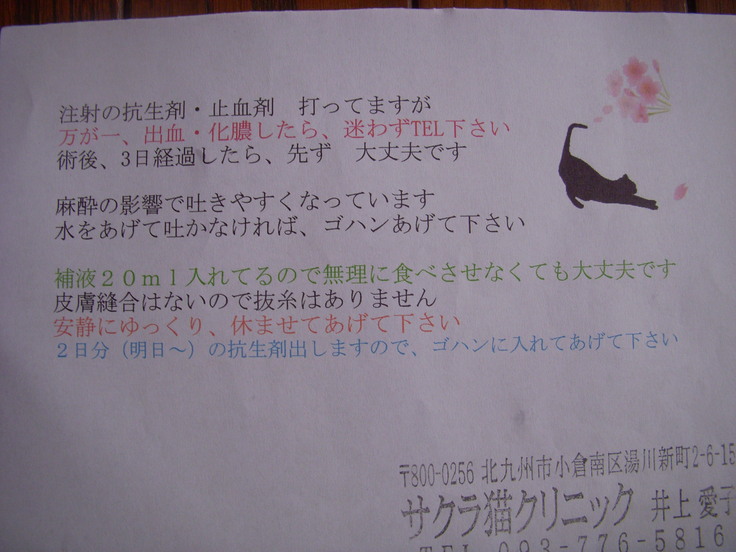 注射の抗生剤・止血剤　打ってますが
万が一、出血・化膿したら、迷わずTEL下さい
術後、3日経過したら、先ず　大丈夫です
麻酔の影響で吐きやすくなっています
水をあげて吐かなければ、ゴハンあげて下さい
補液２０ｍｌ入れてるので無理に食べさせなくても大丈夫です
皮膚縫合はないので抜糸はありません
安静にゆっくり、休ませてあげて下さい
２日分（明日～）の抗生剤出しますので、ゴハンに入れてあげて下さい
〒800-0256 北九州市小倉南区湯川新町2-6-15
サクラ猫クリニック 井上 愛子
TEL 093-776-5816